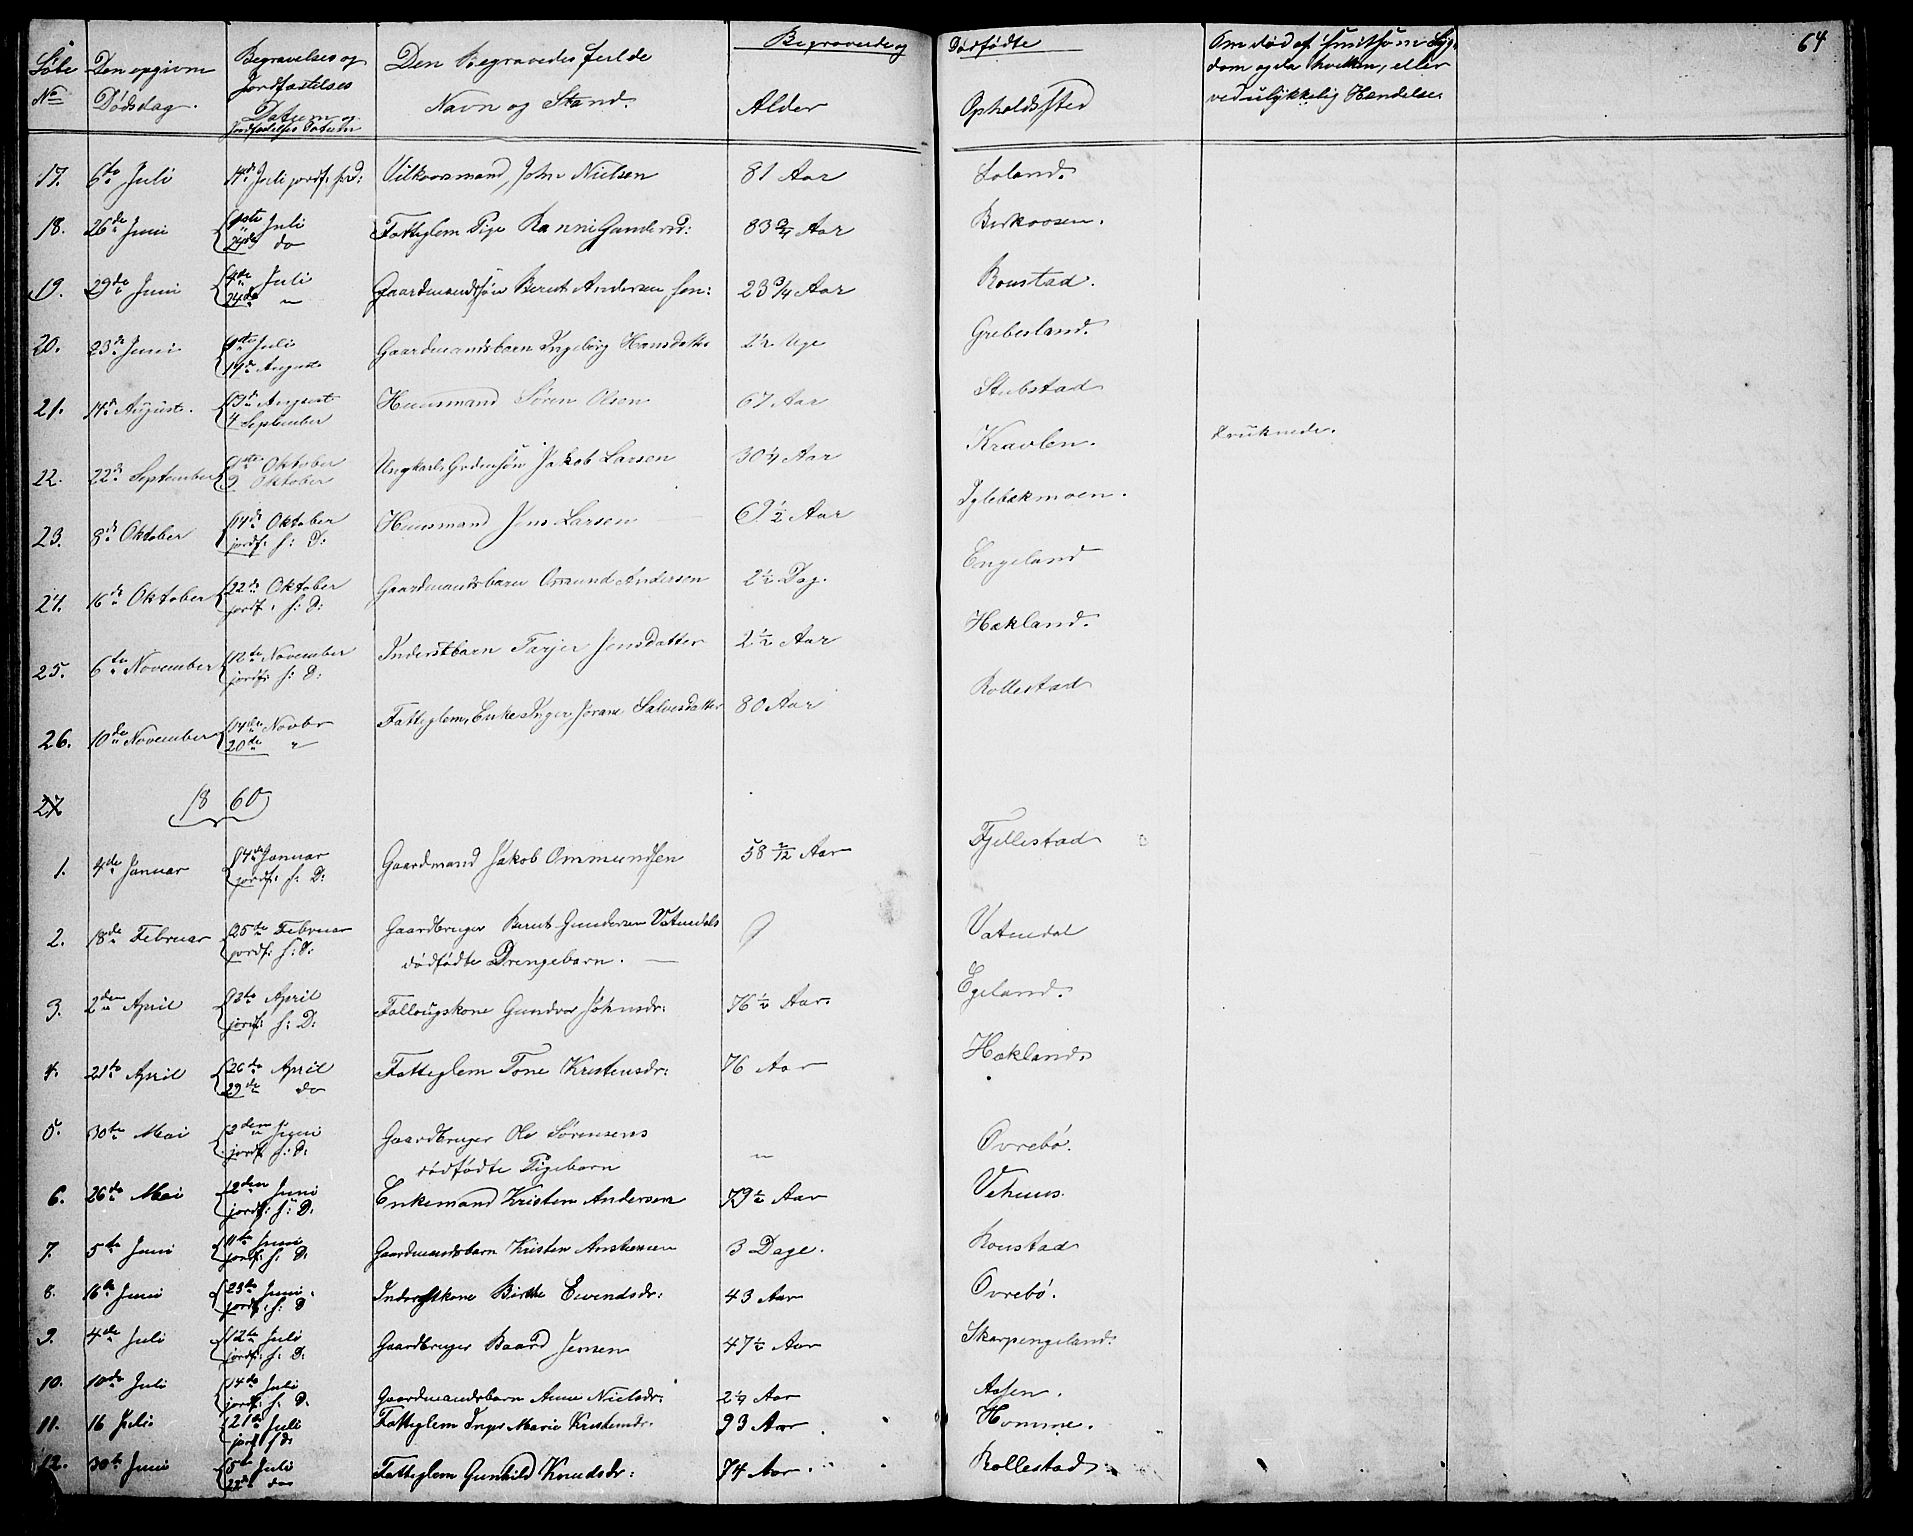 64
Begravede og Dødfødte
Løbe No
Den opgivne Dødsdag.
Begravelses og Jordfæstelses Datum og Jordfæstelses Datum
Den Begravedes fulde Navn og Stand.
Alder
Opholdssted
Om død af smitsom Syg-
dom og da hvilken, eller
ved ulykkelig Hændelse.
17. 6te Juli 14de Juli jordf: s: D: Vilkaarsmand, John Nielsen 81 Aar Loland.
18. 26de Juni 1ste Juli 24de do Fattiglem Pige Ranni Gundersd: 83 3/4 Aar Birkaasen.
19. 29de Juni 4de Juli 24de " Gaardmandssøn Berut Andersen 23 3/4 Aar Roustad.
20. 23de Juni Juli 14de August Gaardmandsbarn Ingeborg Hansdatter 2 1/2 Uge Grebesland.
21. 14de August. 19de August 4 September Huusmand Søren Olsen 67 Aar Stubstad
22. 22de September 1ste Oktober 9 Oktober Ungkarl Jakob Larsen 30 1/4 Aar Kravlen. druknede.
23. 8de Oktober 14de Oktober jordf: s: D: Huusmand Jens Larsen 61 1/2 Aar Iglebækmoen.
24. 16de Oktober 22de Oktober jordf: s: D: Gaardmandsbarn Omund Andersen 2 1/2 Dag. Engeland
25. 6te November 12te November jordf: s: D: Inderstbarn Tarjer Jensdatter 2 1/2 Aar Hækland.
26. 10de November 14de Novbr 20de " Fattiglem, Enke Inger Jorane Salvesdatter 80 Aar Rollestad
27
1860
1. 4de Januar 14de Januar jordf: s: D: Gaardmand Jakob Ommundsen 58 2/12 Aar Fjellestad
2. 18de Februar 25de Februar jordf: s: D: Gaardbruger Berut Gundersen Vatnedals Vatnedal
dødfødte Drengebarn. —
3. 2den April 12te April jordf: s: D: Follougskone Gundvor Johnsdr: 76 1/2 Aar. Egeland.
4. 21de April 26de April 29de do Fattiglem Tone Kristensdr: 76 Aar Hækland.
5. 30te Mai 2den Juni jordf: s: D: Gaardbruger Ole Sørensens " Øvrebø.
dødfødte Pigebarn
6. 26de Mai 2den Juni jordf: s: D: Enkemand Kristen Andersen 79 1/2 Aar Vehuus.
7. 5te Juni 11te Juni jordf: s: D: Gaardmandsbarn Kristen Anstensen 3 Dage. Roustad
8. 16de Juni 23de Juni. jordf: s: D Inderstkone Birthe Eivendsdr: 43 Aar Øvrebø.
9. 4de Juli 12te Juli jordf: s: D: Gaardbruger Baard Jensen 47 1/2 Aar Skarpengeland.
10. 10de Juli 14de Juli jordf: s: D. Gaardmandsbarn Anne Nielsdr: 2 1/4 Aar Aasen.
11. 16 Juli 21de Juli jordf s D: Fattiglem Inger Marie Kristensdr: 93 Aar. Homme.
12. 30te Juni 5te Juli 22de do Fattiglem Gunhild Knudsdr: 74 Aar. Rollestad